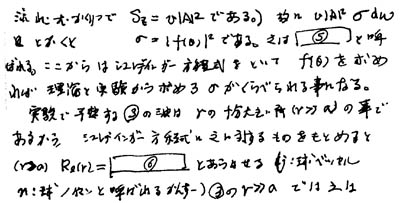 流れがかかって Sz = v|A|² である。) 故に v|A|² σ dω
とおくと σ = |f(θ)|² である。之は ⑤ と呼
ばれる。ここからはシュレディンガー方程式をといて f(θ) を求め
れば 理論と実験から求める σ がくらべられる事になる。
実験で予想する③の波は rの十分大きい所 (r≫a) の事で
あるから シュレディンガー方程式に之に対するものをもとめると
(r≫a) Rl(r) = ⑥ とあらわせる (j: 球ベッセル
n: 球ノイマンと呼ばれるかんすう) ③の r≫a では之は